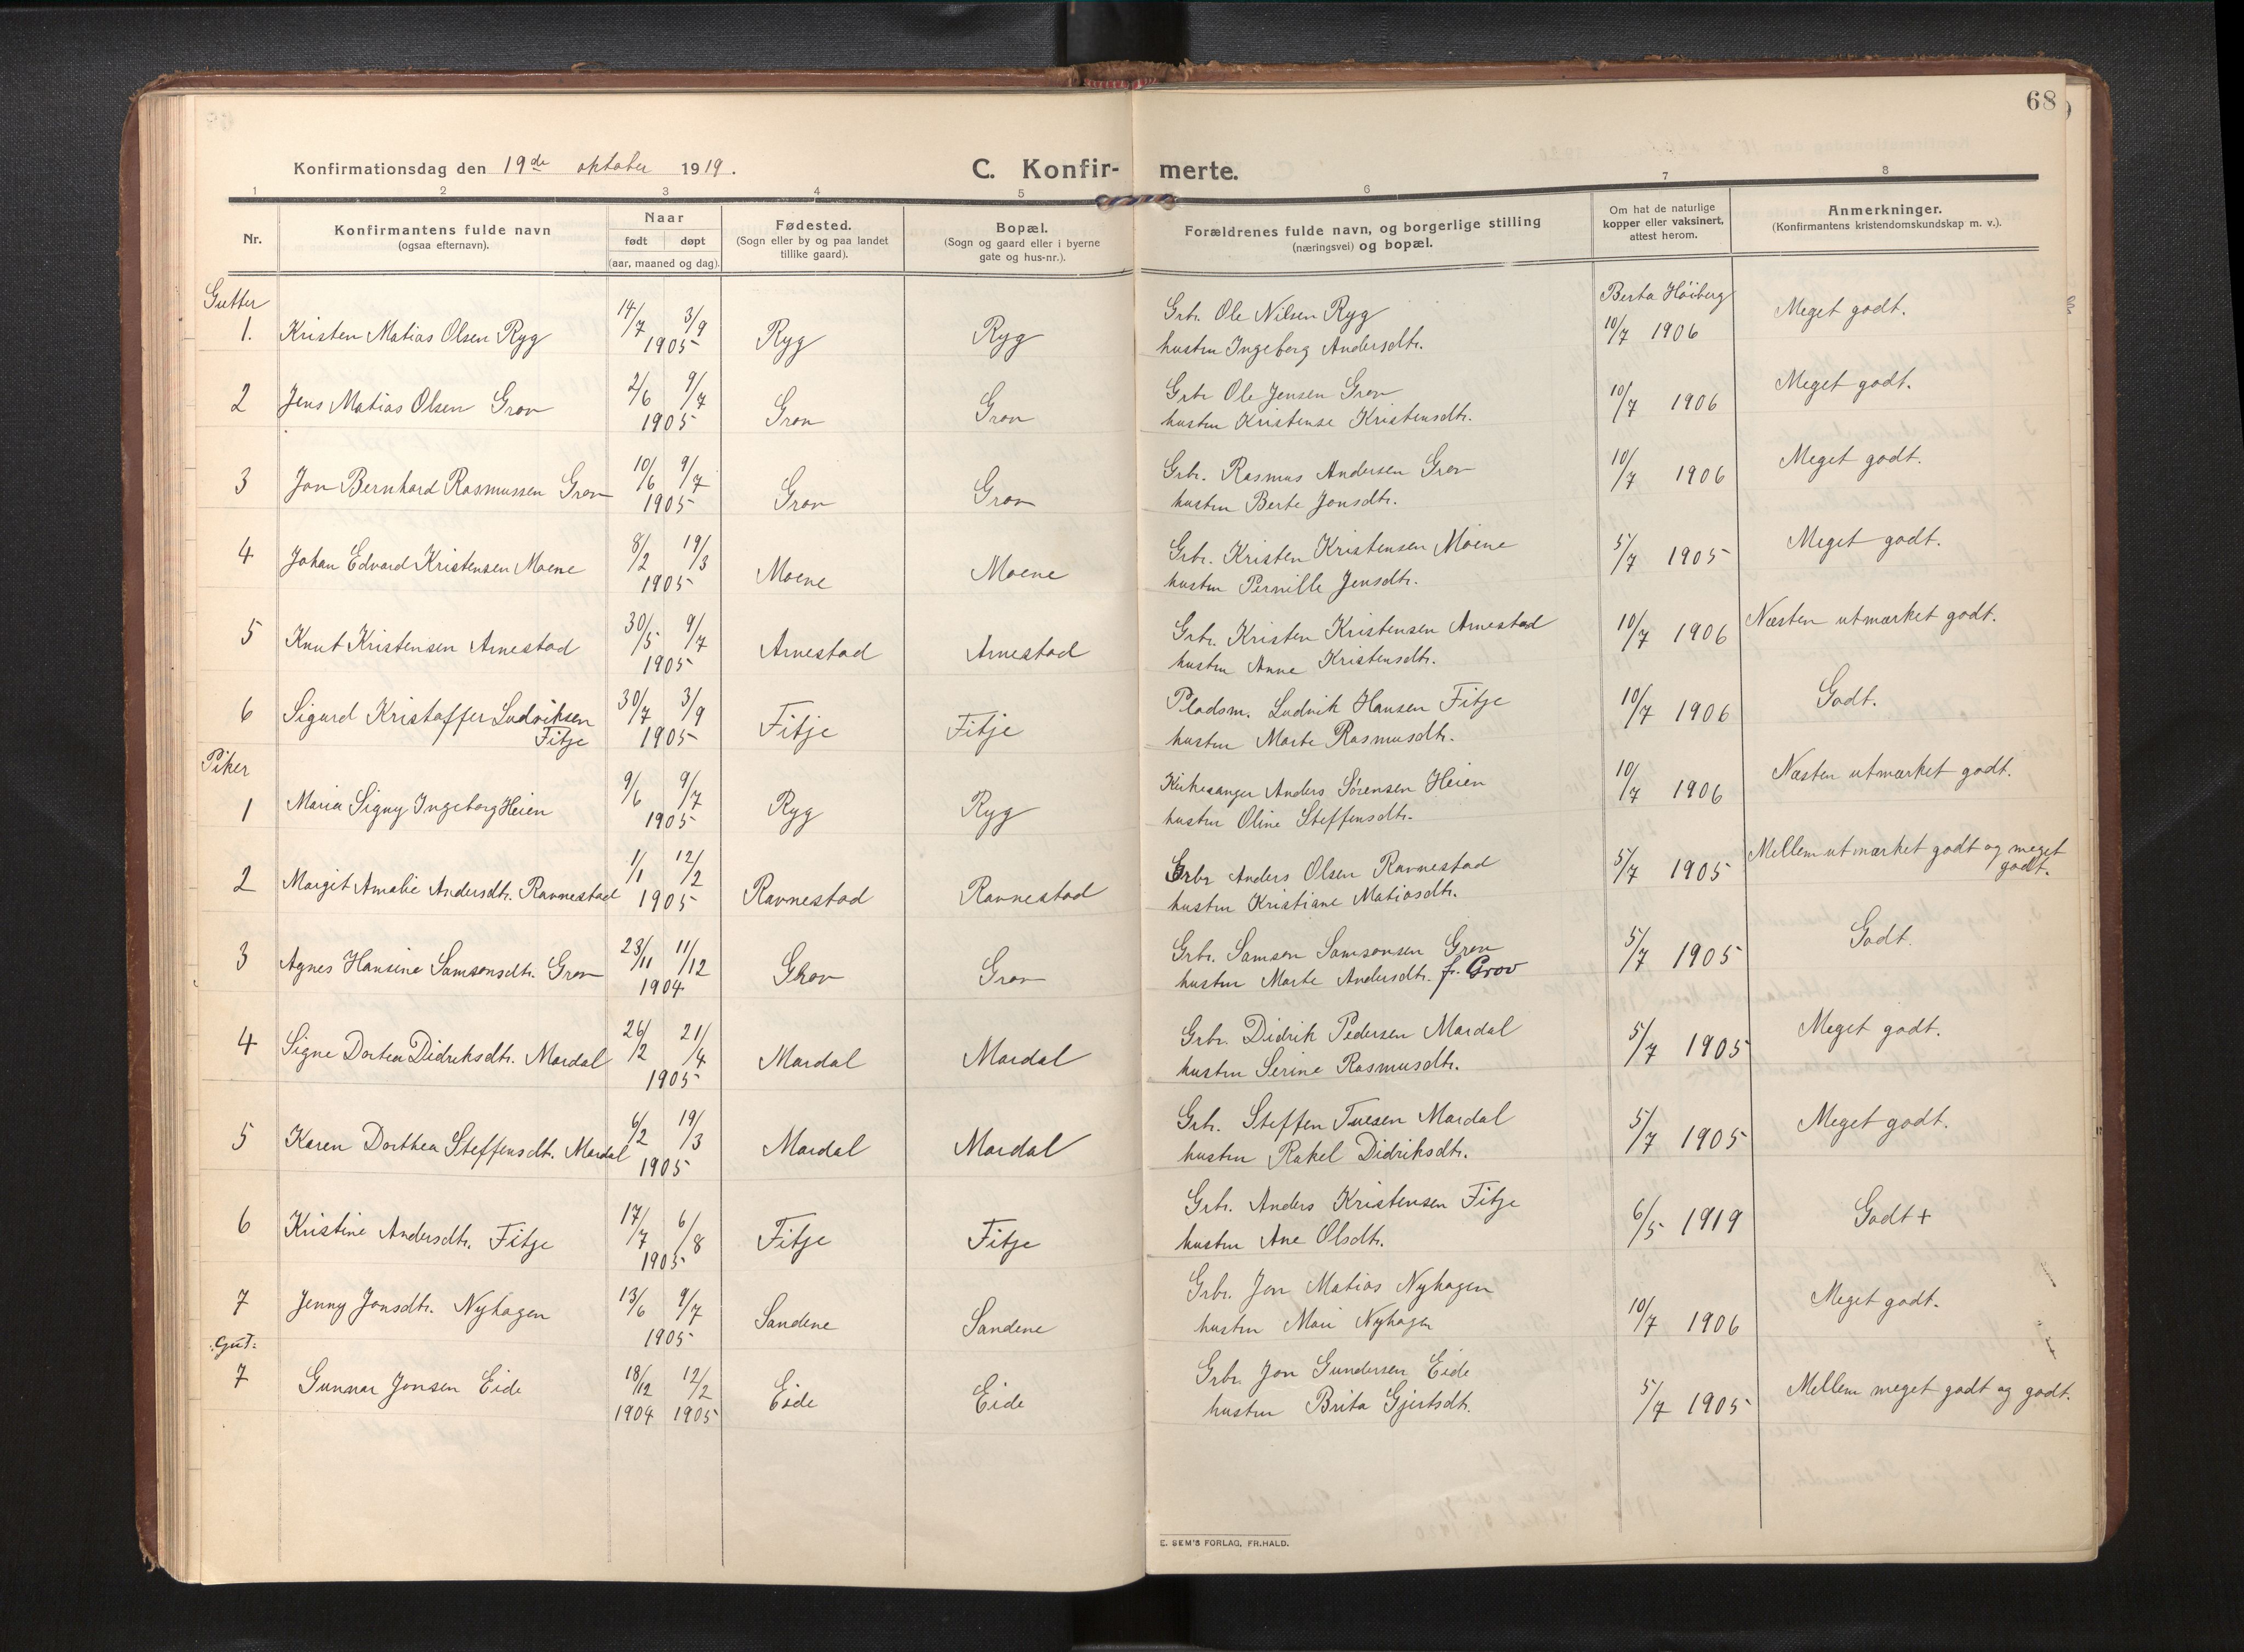 68
Konfirmationsdag den 19de oktober 1919.
C. Konfir- merte.
1 2 3 4 5 6 7 8
Nr.
Konfirmantens fulde navn
(ogsaa efternavn).
Naar
født døpt
(aar, maaned og dag).
Fødested.
(Sogn eller by og paa landet
tillike gaard).
Bopæl.
(Sogn og gaard eller i byerne
gate og hus-nr.).
Forældrenes fulde navn, og borgerlige stilling
(næringsvei) og bopæl.
Om hat de naturlige
kopper eller vaksinert,
attest herom.
Anmerkninger.
(Konfirmantens kristendomskundskap m. v.).
Gutter
1. Kristen Matias Olsen Ryg 14/7 3/9 1905 Ryg Ryg Grbr. Ole Nilsen Ryg
hustru Ingeborg Andersdtr. Berta Høiberg
10/7 1906 Meget godt.
2 Jens Matias Olsen Grov 2/6 9/7 1905 Grov Grov Grbr Ole Jensen Grov
hustru Kristense Kristensdtr. 10/7 1906 Meget godt.
3 Jon Bernhard Rasmussen Grov 10/6 9/7 1905 Grov Grov Grbr. Rasmus Andersen Grov
hustru Berte Jonsdtr. 10/7 1906 Meget godt.
4 Johan Edvard Kristensen Moene 8/2 19/3 1905 Moene Moene Grbr. Kristen Kristensen Moene
hustru Pernille Jensdtr. 5/7 1905 Meget godt.
5 Knut Kristensen Arnestad 30/5 9/7 1905 Arnestad Arnestad Grbr. Kristen Kristensen Arnestad
hustru Anne Kristensdtr. 10/7 1906 Næsten utmærket godt.
6 Sigurd Kristoffer Ludviksen
Fitje 30/7 3/9 1905 Fitje Fitje Pladsm. Ludvik Hansen Fitje
hustru Marte Rasmusdtr. 10/7 1906 Godt.
Piker
1 Maria Signy Ingeborg Heien 9/6 9/7 1905 Ryg Ryg Kirkesanger Anders Sørensen Heien
hustru Oline Steffensdtr. 10/7 1906 Næsten utmærket godt.
2 Margit Amalie Andersdtr. Ravnestad 1/1 12/2 1905 Ravnestad Ravnestad Grbr Anders Olsen Ravnestad
hustru Kristiane Matiasdtr. 5/7 1905 Mellem utmærket godt og meget
godt.
3 Agnes Hansine Samsonsdtr. Grov 23/11 11/12 1904 Grov Grov Grbr. Samson Samsonsen Grov
hustru Marte Andersdtr. f. Grov 5/7 1905 Godt.
4 Signe Dortea Didriksdtr. Mardal 26/2 21/4 1905 Mardal Mardal Grbr. Didrik Pedersen Mardal
hustru Serine Rasmusdtr. 5/7 1905 Meget godt.
5 Karen Dorthea Steffensdtr. Mardal 6/2 19/3 1905 Mardal Mardal Grbr. Steffen Tuesen Mardal
hustru Rakel Didriksdtr. 5/7 1905 Meget godt.
6 Kristine Andersdtr. Fitje 17/7 6/8 1905 Fitje Fitje Grbr. Anders Kristensen Fitje
hustru Ane Olsdtr. 6/5 1919 Godt +
7 Jenny Jonsdtr. Nyhagen 13/6 9/7 1905 Sandene Sandene Grbr. Jon Matias Nyhagen
hustru Mari Nyhagen 10/7 1906 Meget godt.
Gut:
7 Gunnar Jonsen Eide 18/12 1904 12/2 1905 Eide Eide Grbr. Jon Gundersen Eide
hustru Brita Gjertsdtr. 5/7 1905 Mellem meget godt og godt.
E. SEM'S FORLAG, FR.HALD.